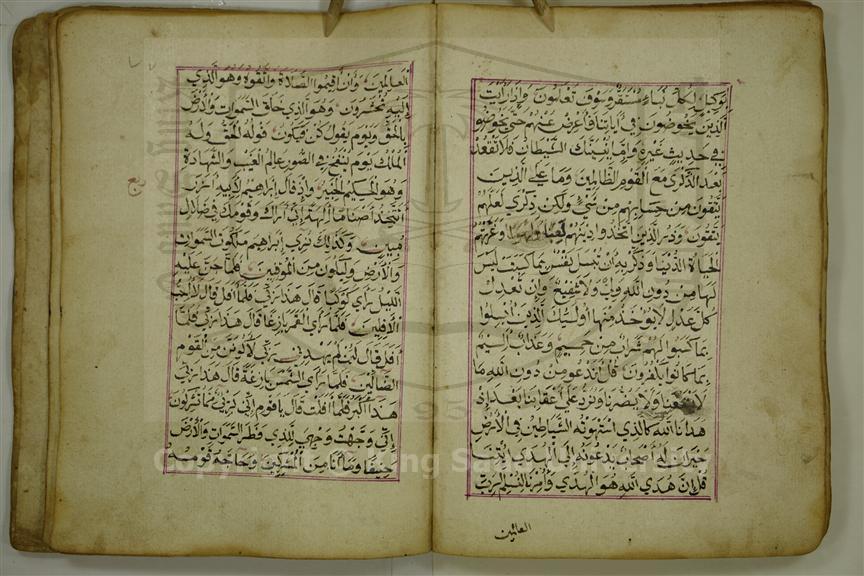 بوكيل لكل نباء مستقر وسوف تعلمون واذا رايت
الذين يخوضون في اياتنا فاعرض عنهم حتى يخوضوا
في حديث غيره واما ينسينك الشيطان فلا تقعد
بعد الذكرى مع القوم الظالمين وما على الذين
يتقون من حسابهم من شيء ولكن ذكرى لعلهم
يتقون وذر الذين اتخذوا دينهم لعبا ولهوا وغرتهم
الحياة الدنيا وذكر به ان تبسل نفس بما كسبت ليس
لها من دون الله ولي ولا شفيع وان تعدل
كل عدل لا يؤخذ منها اوليك الذين ابسلوا
بما كسبوا لهم شراب من حميم وعذاب اليم
بما كانوا يكفرون قل اندعو من دون الله ما
لا ينفعنا ولا يضرنا ونرد على اعقابنا بعد اذ
هدانا الله كالذي استهوته الشياطين في الارض
حيران له اصحاب يدعونه الى الهدى ائتنا
قل ان هدى الله هو الهدى وامرنا لنسلم لرب
العالمين
العالمين وان اقيموا الصلاة واتقوه وهو الذي
اليه تحشرون وهو الذي خلق السموات والارض
بالحق ويوم يقول كن فيكون قوله الحق وله
الملك يوم ينفخ في الصور عالم الغيب والشهادة
وهو الحكيم الخبير واذ قال ابراهيم لابيه ازر
اتتخذ اصناما الهة اني اراك وقومك في ضلال
مبين وكذلك نري ابراهيم ملكوت السموات
والارض وليكون من الموقنين فلما جن عليه
الليل راى كوكبا قال هذا ربي فلما افل قال لا احب
الافلين فلما راى القمر بازغا قال هذا ربي فلما
افل قال لئن لم يهدني ربي لاكونن من القوم
الضالين فلما راى الشمس بازغة قال هذا ربي
هذا اكبر فلما افلت قال ياقوم اني بريء مما تشركون
اني وجهت وجهي للذي فطر السموات والارض
حنيفا وما انا من المشركين وحاجه قومه
ربع
Copyright © King Saud University